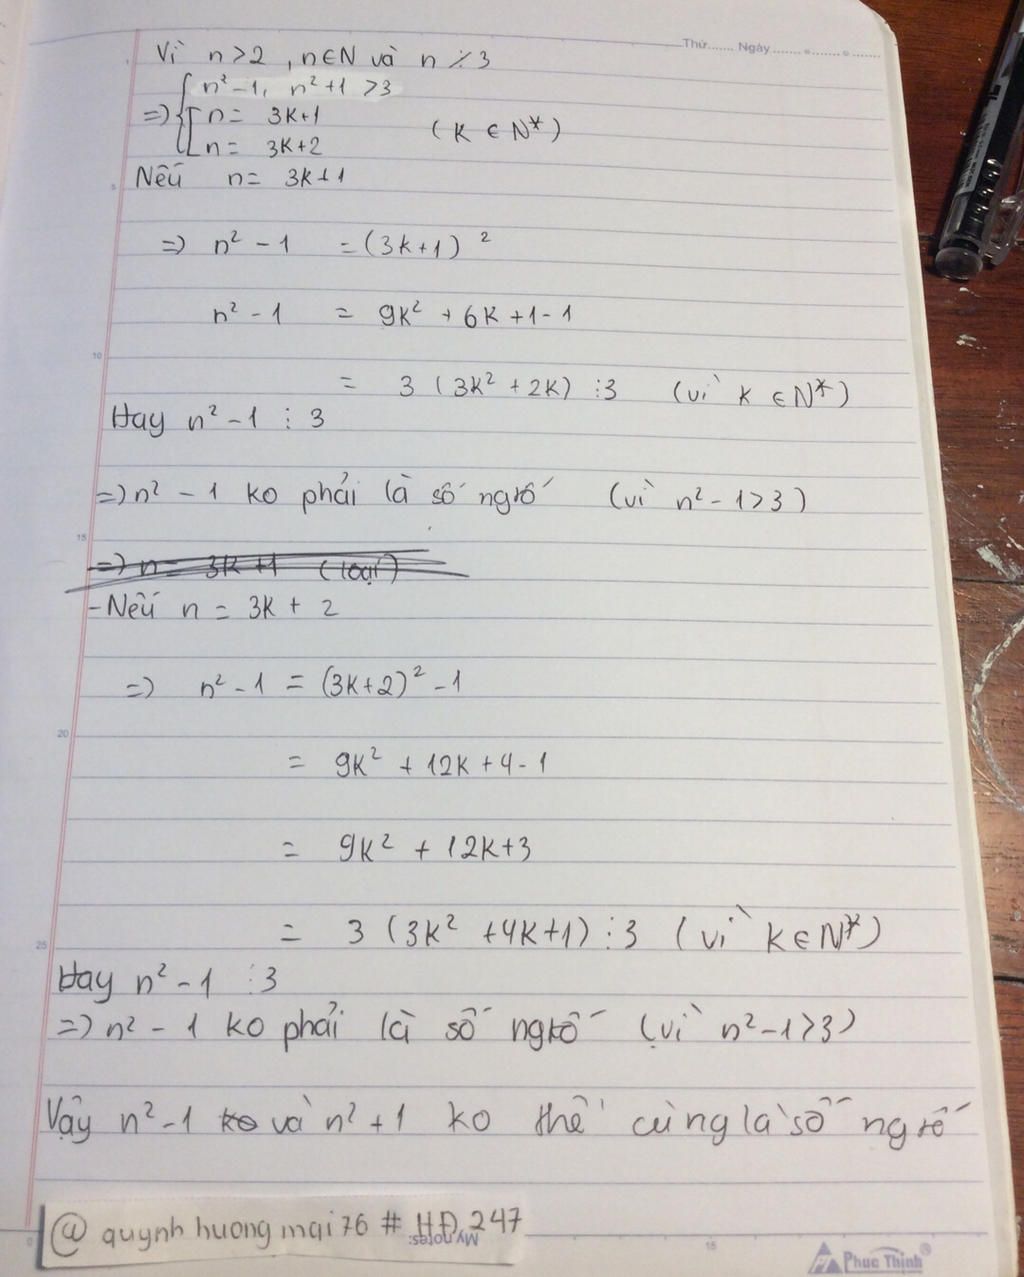 Thứ....... Ngày ....... • ....... • ........
Vì n > 2 , n ∈ N và n ⋮̸ 3
n² - 1, n² + 1 > 3
=> n = 3K+1 ( K ∈ N* )
n = 3K+2
Nếu n = 3K+1
=> n² - 1 = (3K+1) ²
n² - 1 = 9K² + 6K + 1 - 1
10
= 3 (3K² + 2K) ⋮ 3 (vì K ∈ N*)
Hay n² - 1 ⋮ 3
=) n² - 1 ko phải là số ngtố (vì n² - 1 > 3)
15
=) n = 3K + 1 (loại)
- Nếu n = 3K + 2
=) n² - 1 = (3K+2)² - 1
20
= 9K² + 12K + 4 - 1
= 9K² + 12K + 3
25
= 3 (3K² + 4K + 1) ⋮ 3 (vì K ∈ N*)
Hay n² - 1 ⋮ 3
=) n² - 1 ko phải là số ngtố (vì n² - 1 > 3)
Vậy n² - 1 ko và n² + 1 ko thể cùng là số ngtố
@ quynh huong mai 76 # HĐ 247
My notes:
15
Phuc Thinh